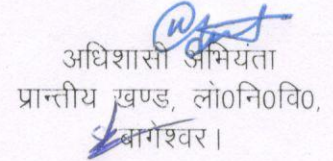 अधिशासी अभियंता
प्रान्तीय खण्ड, लो०नि०वि०,
बागेश्वर।